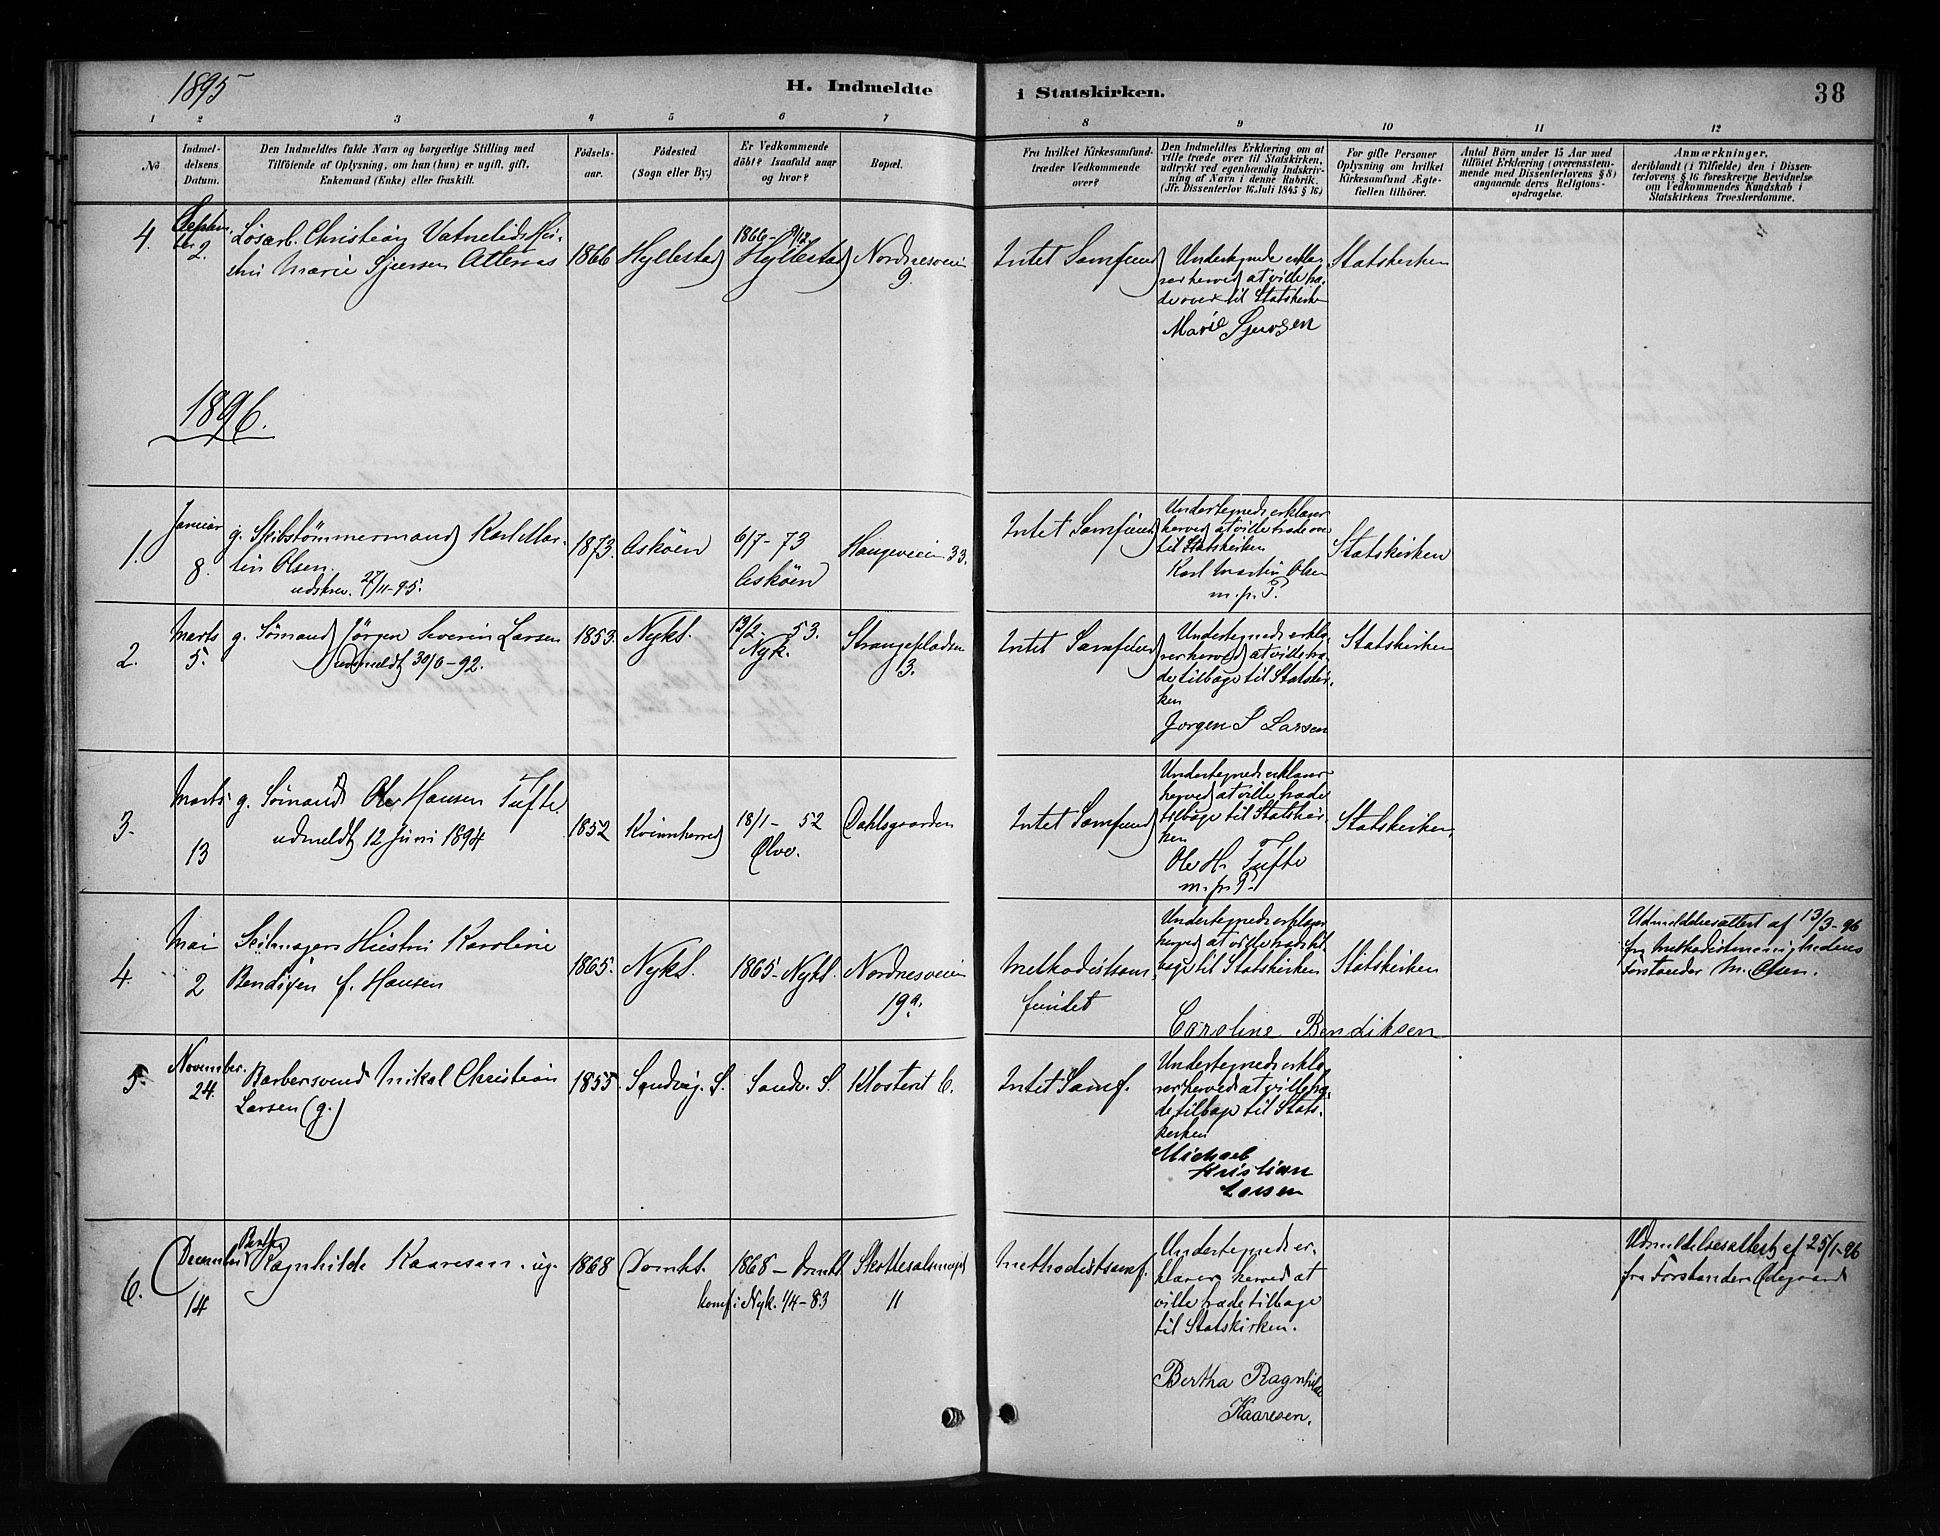 1895
H. Indmeldte i Statskirken.
38
1 2 3 4 5 6 7 8 9 10 11 12
No
Indmel-
delsens
Datum.
Den Indmeldtes fulde Navn og borgerlige Stilling med
Tilföiende af Oplysning, om han (hun) er ugift, gift,
Enkemand (Enke) eller fraskilt.
Födsels-
aar.
Födested
(Sogn eller By.)
Er Vedkommende
döbt? Isaafald naar
og hvor?
Bopæl.
Fra hvilket Kirkesamfund
træder Vedkommende
over?
Den Indmeldtes Erklæring om at
ville træde over til Statskirken,
udtrykt ved egenhændig Indskriv-
ning af Navn i denne Rubrik.
(Jfr. Dissenterlov 16 Juli 1845 § 16)
For gifte Personer
Oplysning om hvilket
Kirkesamfund Ægte-
fællen tilhörer.
Antal Börn under 15 Aar med
tilföiet Erklæring (overensstem-
mende med Dissenterlovens § 8)
angaaende deres Religions-
opdragelse.
Anmærkninger,
deriblandt (i Tilfælde) den i Dissen-
terlovens § 16 foreskrevne Bevidnelse
om Vedkommendes Kundskab i
Statskirkens Troeslærdomme.
4.
Septem-
ber 2.
Løsarb. Christian Vatnelids Hu-
stru Marie Sjursen
1866
Hyllestad
1866
Hyllestad
Nordnesveien
9.
Intet Samfund
Undertegnede erklæ-
rer herved at ville træ-
de over til Statskirke
Marie Sjursen
Statskirken
1896.
1.
Januar
8.
g. Skibstømmermand Karl Mar-
tin Olsen.
udskrev. 27/11-95.
1873.
Askøen
6/7-73
Askøen
Haugeveien 33.
Intet Samfund
Undertegnede erklærer
herved at ville træde over
til Statskirken
Karl Martin Olsen
m. p. P.
Statskirken
2.
Marts
5.
g. Sømand Jørgen Severin Larsen
udmeldt 30/6-92.
1853.
Nykt.
13/2. 53.
Nyk.
Strangepladsen
3.
Intet Samfund
Undertegnede erklæ-
rer herved at ville træ-
de tilbage til Statskir-
ken
Jorgen S Larsen
Statskirken
3.
Marts
13
g. Sømand Ole Hansen Tufte.
udmeldt 12 Juni 1894
1852
Kvinnherred
18/1-52
Ølve.
Dahlsgaarden
Intet Samfund
Undertegnede erklærer
herved at ville træde
tilbage til Statskir-
ken
Ole H. Tufte
m. p. P.
Statskirken.
4.
Mai
2
Seilmagers Hustru Karoline
Bendixen f. Hansen
1865.
Nykt.
1865-Nykt.
Nordnesveien
19a.
Methodistsam
fundet
Undertegnede erklærer
herved at ville træde til-
bage til Statskirken
Caroline Bendiksen
Statskirken
Udmeldelsesattest af 13/3-96
fra Methodistmenighedens
Forstander M. Olsen.
5.
November.
24.
Barbersvend Mikal Christian
Larsen (g.)
1855
Sandvig. S.
Sandv. S.
Klosteret 6.
Intet Samf.
Undertegnede erklæ-
rer herved at ville træ-
de tilbage til Stats-
kirken
Michael
Kristian
Larsen
6.
December
14
Bertha
Ragnhilde Kaaresen. ug.
1868
Domk.
1868-Domk.
konf i Nyk. 1/4-83
11
Methodistsamf.
Undertegnede er-
klærer herved at
ville træde tilbage
til Statskirken.
Bertha Ragnhilde
Kaaresen.
Udmeldelsesattest af 25/1-96
fra Forstander Ødegaard